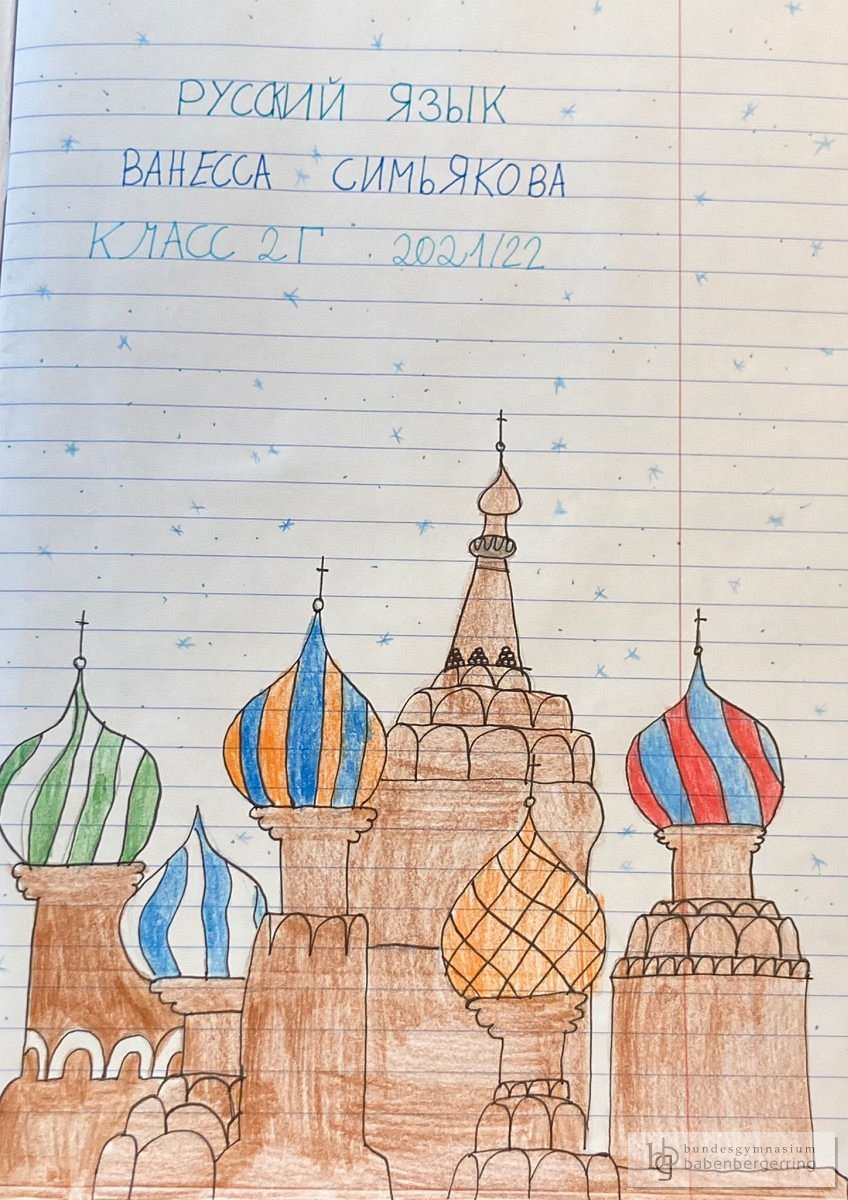 РУССКИЙ ЯЗЫК
ВАНЕССА СИМЬЯКОВА
КЛАСС 2Г 2021/22
bg bundesgymnasium
babenbergerring